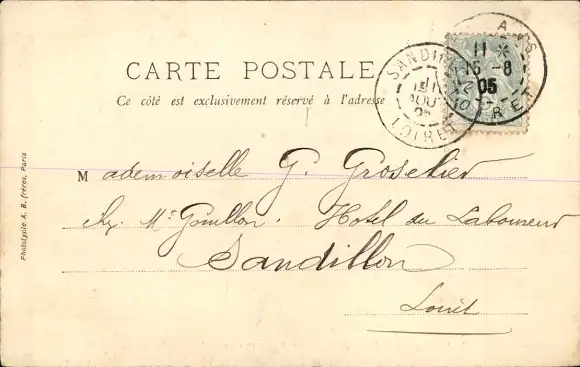 CARTE POSTALE
Ce côté est exclusivement réservé à l'adresse
SANDILLON
15
AOUT
05
LOIRET
11 *
15 - 8
05
RET
Mademoiselle G. Groselier
chez Mr Gouillon. Hotel du Laboureur
Sandillon
Loiret
Phototypie A. B. frères, Paris